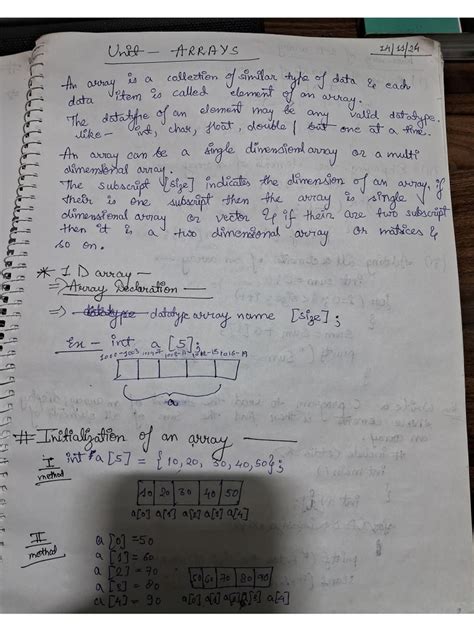 Unit - ARRAYS 14/11/24
An array is a collection of similar type of data & each
data item is called element of an array.
The datatype of an element may be any valid datatype.
like - int, char, float, double / but one at a time.
An array can be a single dimensional array or a multi
dimensional array.
The subscript [size] indicates the dimension of an array. if
their is one subscript then the array is single
dimensional array or vector & if their are two subscript
then it is a two dimensional array or matices &
so on.
* 1D array -
⇒ Array Declaration -
⇒ datatype array name [size];
Ex - int a [5];
a
# Initialization of an array
I method int a[5] = {10, 20, 30, 40, 50};
10 20 30 40 50
a[0] a[1] a[2] a[3] a[4]
II method a[0] = 50
a[1] = 60
a[2] = 70
a[3] = 80
a[4] = 90
50 60 70 80 90
a[0] a[1] a[2] a[3] a[4]